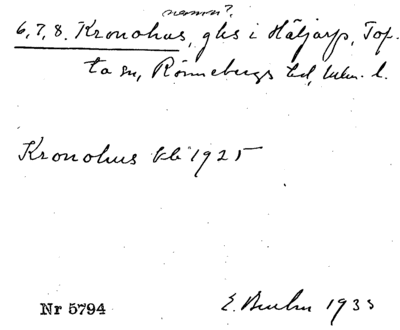 namn?
6, 7, 8. Kronohus, ghs i Häljarp, Tof-
ta sn, Rönnebergs hd, Mlm. l.
Kronohus kb 1925
Nr 5794
E. 1933